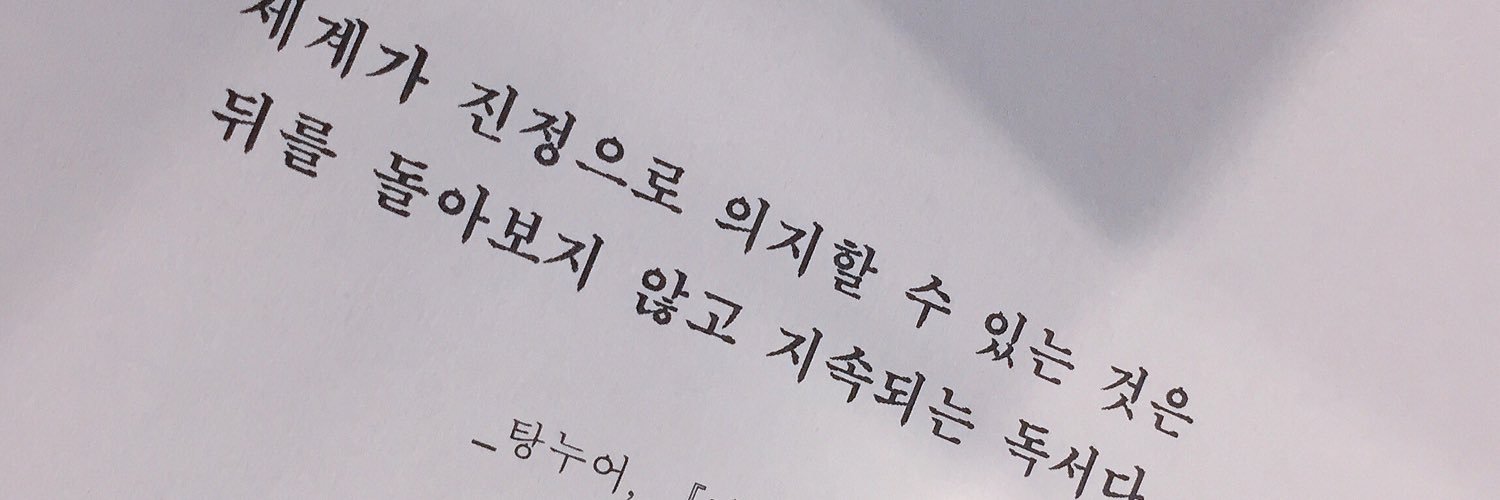 세계가 진정으로 의지할 수 있는 것은
뒤를 돌아보지 않고 지속되는 독서다
_탕누어, 『